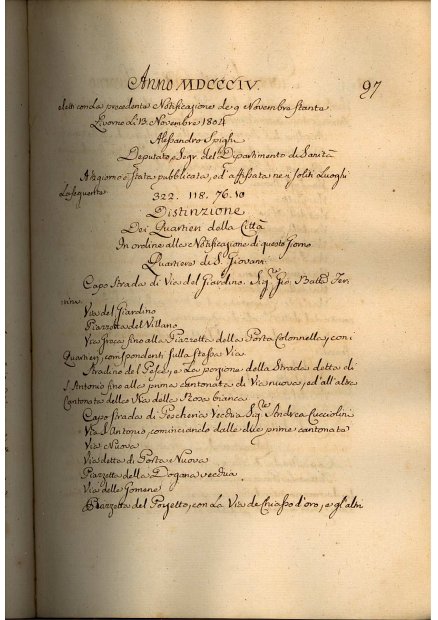 Anno MDCCCIV. 97
eletti con la precedente Notificazione de 9 Novembre stante
Livorno li 13. Novembre 1804
Alessandro Spighi
Deputato, e Segr. del Dipartimento di Sanità
A dì giorno è stata pubblicata, ed affissata ne i soliti Luoghi
La seguente 322. 118. 76. 10
Distinzione
Dei Quartieri della Città
In ordine alla Notificazione di questo Giorno
Quartiere di S. Giovanni
Capo Strada di Via del Giardino. Sig.re Gio. Batta Ter-
Via del Giardino
Piazzetta del Villano
Via Greca fino alla Piazzetta della Porta Colonnella, con i
Quartieri, corrispondenti sulla stessa Via
Stradino del Pesce, e La porzione della Strada detta di
S. Antonio fino alla prima cantonata di Via nuova, ed all'altra
Cantonata della Via della Rosa bianca
Capo Strada di Pescheria Vecchia Sig.re Andrea Cucciolini
Via S. Antonio, cominciando dalle due prime cantonate
Via Nuova
Via detta di Porta Nuova
Piazzetta della Dogana vecchia
Via delle Gomene
Piazzetta del Pozzetto, con La Via de Chiasso d'oro, e gl'altri